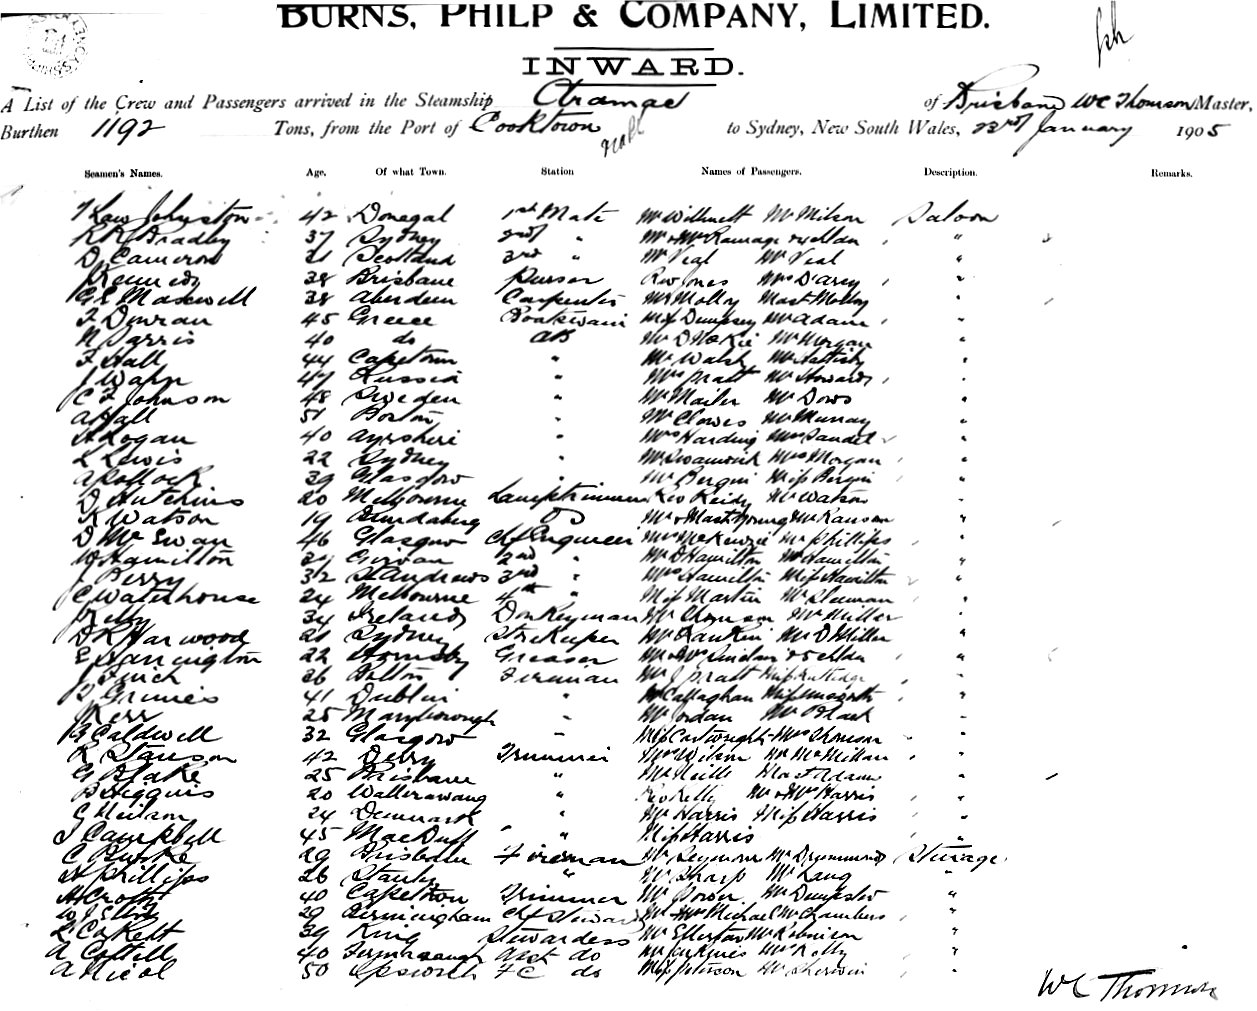 BURNS, PHILP & COMPANY, LIMITED.
INWARD.
A List of the Crew and Passengers arrived in the Steamship Aramac of Brisbane W C Thomson Master,
Burthen 1192 Tons, from the Port of Cooktown to Sydney, New South Wales, 23rd January 1905
Seamen's Names. Age. Of what Town. Station Names of Passengers. Description. Remarks.
Johnston 42 Donegal 1st Mate Mr Willmett Mr Milson Saloon
R R Bradley 37 Sydney 2nd " Mr & Mrs Ramage & children "
D Cameron 31 Scotland 3rd " Mr Veal Mr Veal "
Kennedy 38 Brisbane Purser Rev Jones Mrs D'arcy "
G E Maxwell 38 Aberdeen Carpenter Mr Molloy Mast Molloy "
45 Greece Boatswain Miss Dempsey Mr Adam "
N Sarris 40 do AB Mr Morgan "
F Hall 44 Capetown " Mr Walsh "
J Wahn 47 Russia " Mrs Pratt Mr Howard "
C F Johnson 48 Sweden " Mr Mailer Mr Dows "
A Hall 51 Boston " Mr Clowes Mr Murray "
A Logan 40 Ayrshire " Mrs Harding "
L Lewis 22 Sydney " Mr Swanwick Mrs Morgan "
A Pollock 39 Glasgow " Mr Bergin Miss Bergin "
D Hutchins 20 Melbourne Lamptrimmer Rev Reidy Mr Watson "
R Watson 19 Bundaberg OS Mr & Mast Young Mr Ranson "
D McEwan 46 Glasgow Chf Engineer Mrs McKenzie Mr Phillips "
Hamilton 34 Girvan 2nd " Mr D Hamilton Mr Hamilton "
J Berry 32 St Andrews 3rd " Mrs Hamilton Miss Hamilton "
C Waterhouse 24 Melbourne 4th " Miss Martin "
J Kelly 34 Ireland Donkeyman Mr Thomson Mr Miller "
D R Harwood 21 Sydney Storekeeper Mr Rankin Mr D Miller "
E Harrington 22 Hornsby Greaser Mr & Mrs Sinclair & 5 children "
J Finch 26 Bolton Fireman Mr J Pratt Miss Rutledge "
41 Dublin " Mr Callaghan "
J Kerr 25 Maryborough " Mr Jordan Mr Black "
R Caldwell 32 Glasgow " Miss Cartwright Mrs Thomson "
R 42 Derry Trimmer Mrs Wilson Mr McMillan "
G Blake 25 Brisbane " Mr Neill Mast Adam "
B Higgins 20 Wallerawang " Rev Kelly Mr & Mrs Harris "
G Neilson 24 Denmark " Mr Harris Miss Harris "
J Campbell 45 MacDuff " Miss Harris "
C Burke 29 Brisbane Fireman Mr Seymour Mr Drummond Steerage
H Phillips 26 " Mr Sharp Mr Lang "
A Croft 40 Capetown Trimmer Mr Power Mr Dempster "
W J 29 Birmingham Chf Steward Mr & Mrs Michael Mr Chambers "
39 King Stewardess Mr Ellerton Mr Robinson "
A Cottell 40 Asst do Mr Jacques Mrs Kelly "
A Nicol 50 Ipswich F C do Miss Peterson Mr Sherwin "
W C Thomson